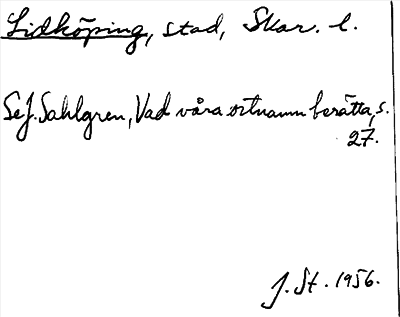 Lidköping, stad, Skar. l.
Se J. Sahlgren, Vad våra ortnamn berätta, s.
27.
J. St. 1956.